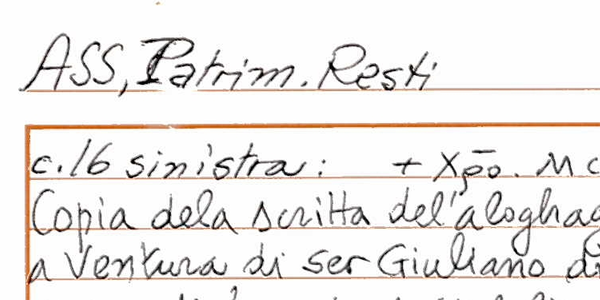 ASS, Patrim. Resti
c. 16 sinistra: + Xp̄o. M
Copia dela scritta del'
a Ventura di ser Giuliano